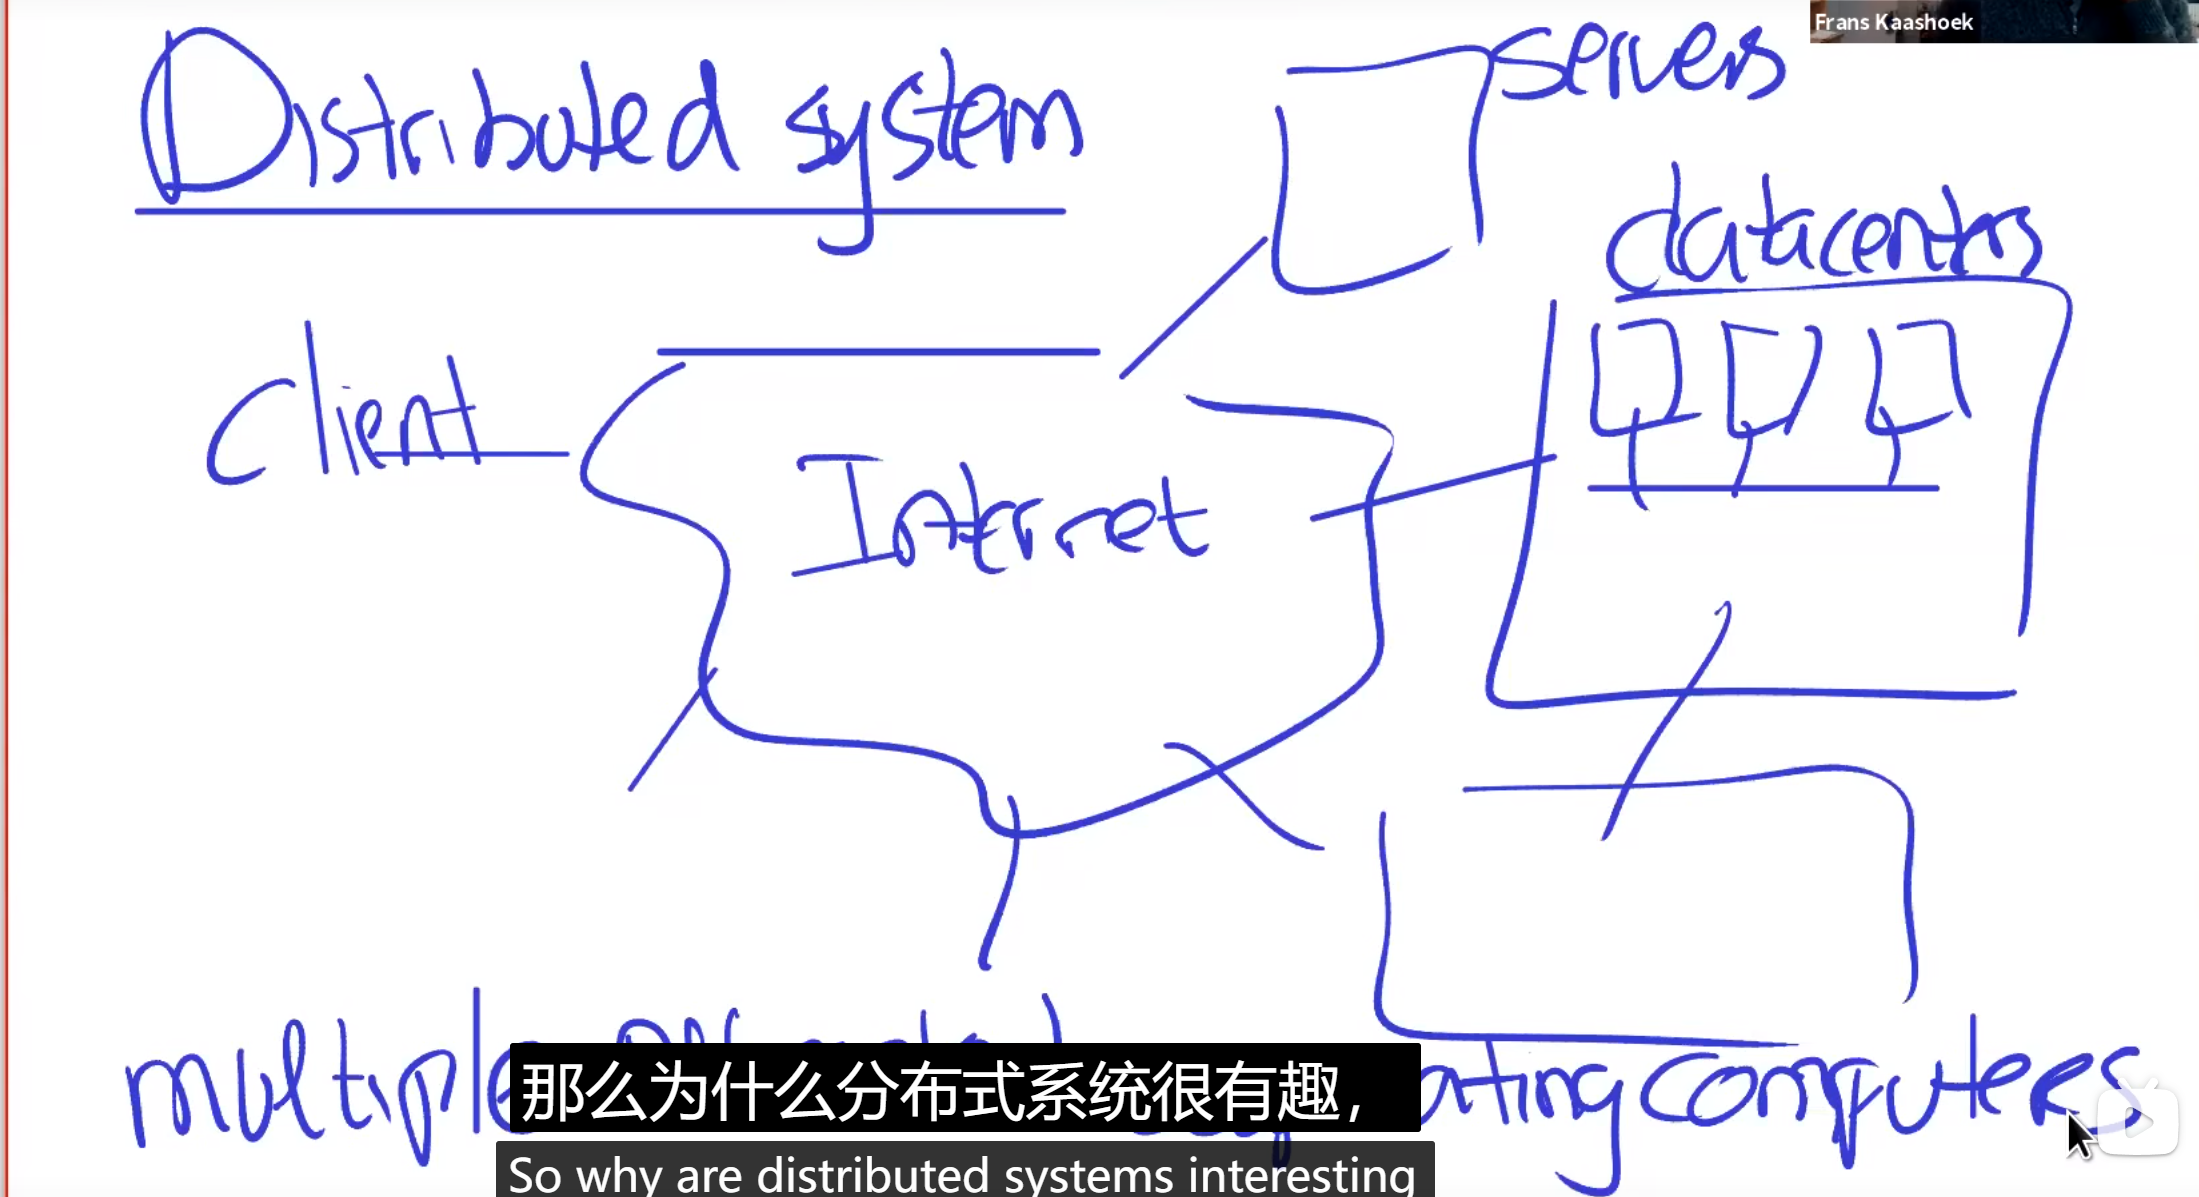 Frans Kaashoek
Distributed system
servers
datacenters
client
Internet
multiple
computers
那么为什么分布式系统很有趣，
So why are distributed systems interesting